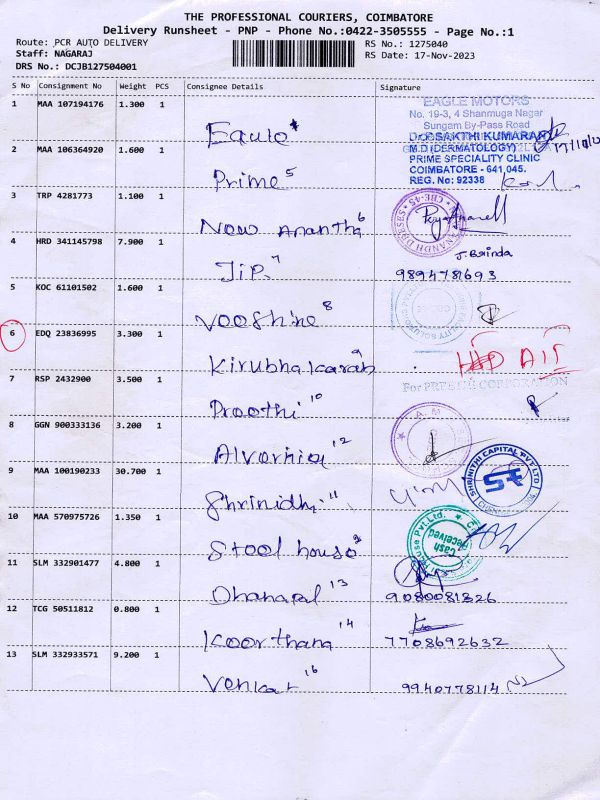 THE PROFESSIONAL COURIERS, COIMBATORE
Delivery Runsheet - PNP - Phone No.:0422-3505555 - Page No.:1
Route: PCR AUTO DELIVERY
Staff: NAGARAJ
DRS No.: DCJB127504001
RS No.: 1275040
RS Date: 17-Nov-2023
S No Consignment No Weight PCS Consignee Details Signature
1 MAA 107194176 1.300 1
EAGLE MOTORS
No. 19-3, 4 Shanmuga Nagar
Sungam By-Pass Road
Eagle 4
Dr.P.SAKTHI KUMARAN
2 MAA 106364920 1.600 1
M.D (DERMATOLOGY)
PRIME SPECIALITY CLINIC
COIMBATORE - 641,045.
REG. No: 92338
Prime 5
3 TRP 4281773 1.100 1
New Anantha 6
4 HRD 341145798 7.900 1
J. Brinda
JiP 7
9894781693
5 KOC 61101502 1.600 1
Vooshine 8
6 EDQ 23836995 3.300 1
Kirubhakarah 9
7 RSP 2432900 3.500 1
For PREETHI CORPORATION
Proothi 10
8 GGN 900333136 3.200 1
Alvernia 12
9 MAA 100190233 30.700 1
SHRINITHI CAPITAL PVT LTD
Shrinidhi 11
10 MAA 570975726 1.350 1
Cash Received
Stool houso 2
11 SLM 332901477 4.800 1
Dhanapal 13
9080081326
12 TCG 50511812 0.800 1
Koorthana 14
7708692632
13 SLM 332933571 9.200 1
Venkat 16
9940778114